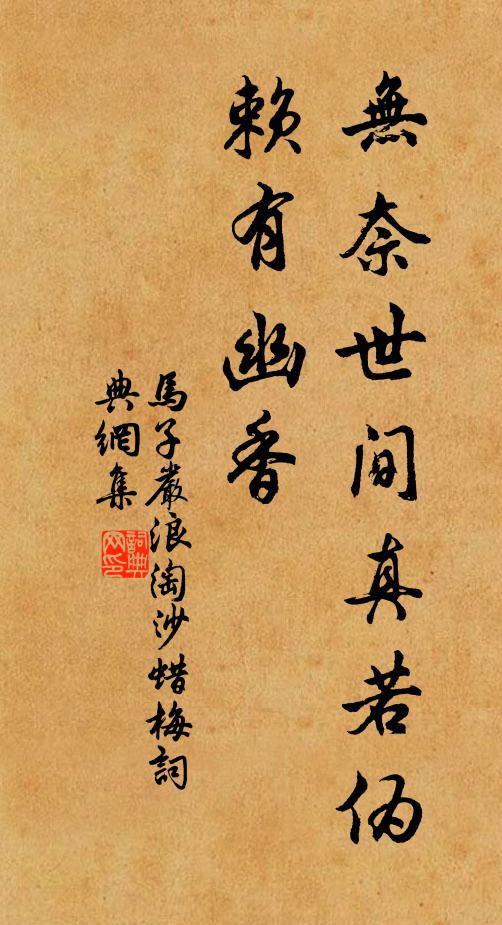 無奈世间真若偽
賴有幽香
馬子嚴浪淘沙蜡梅詞
典網集
詞典
网印